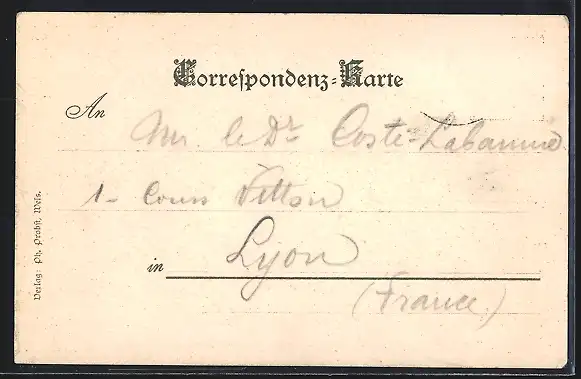 Correspondenz-Karte
An
Mr le Dr Coste-Labaume
1- Cours Vitton
in Lyon
(France)
Verlag: Ph. Probst, Wels.